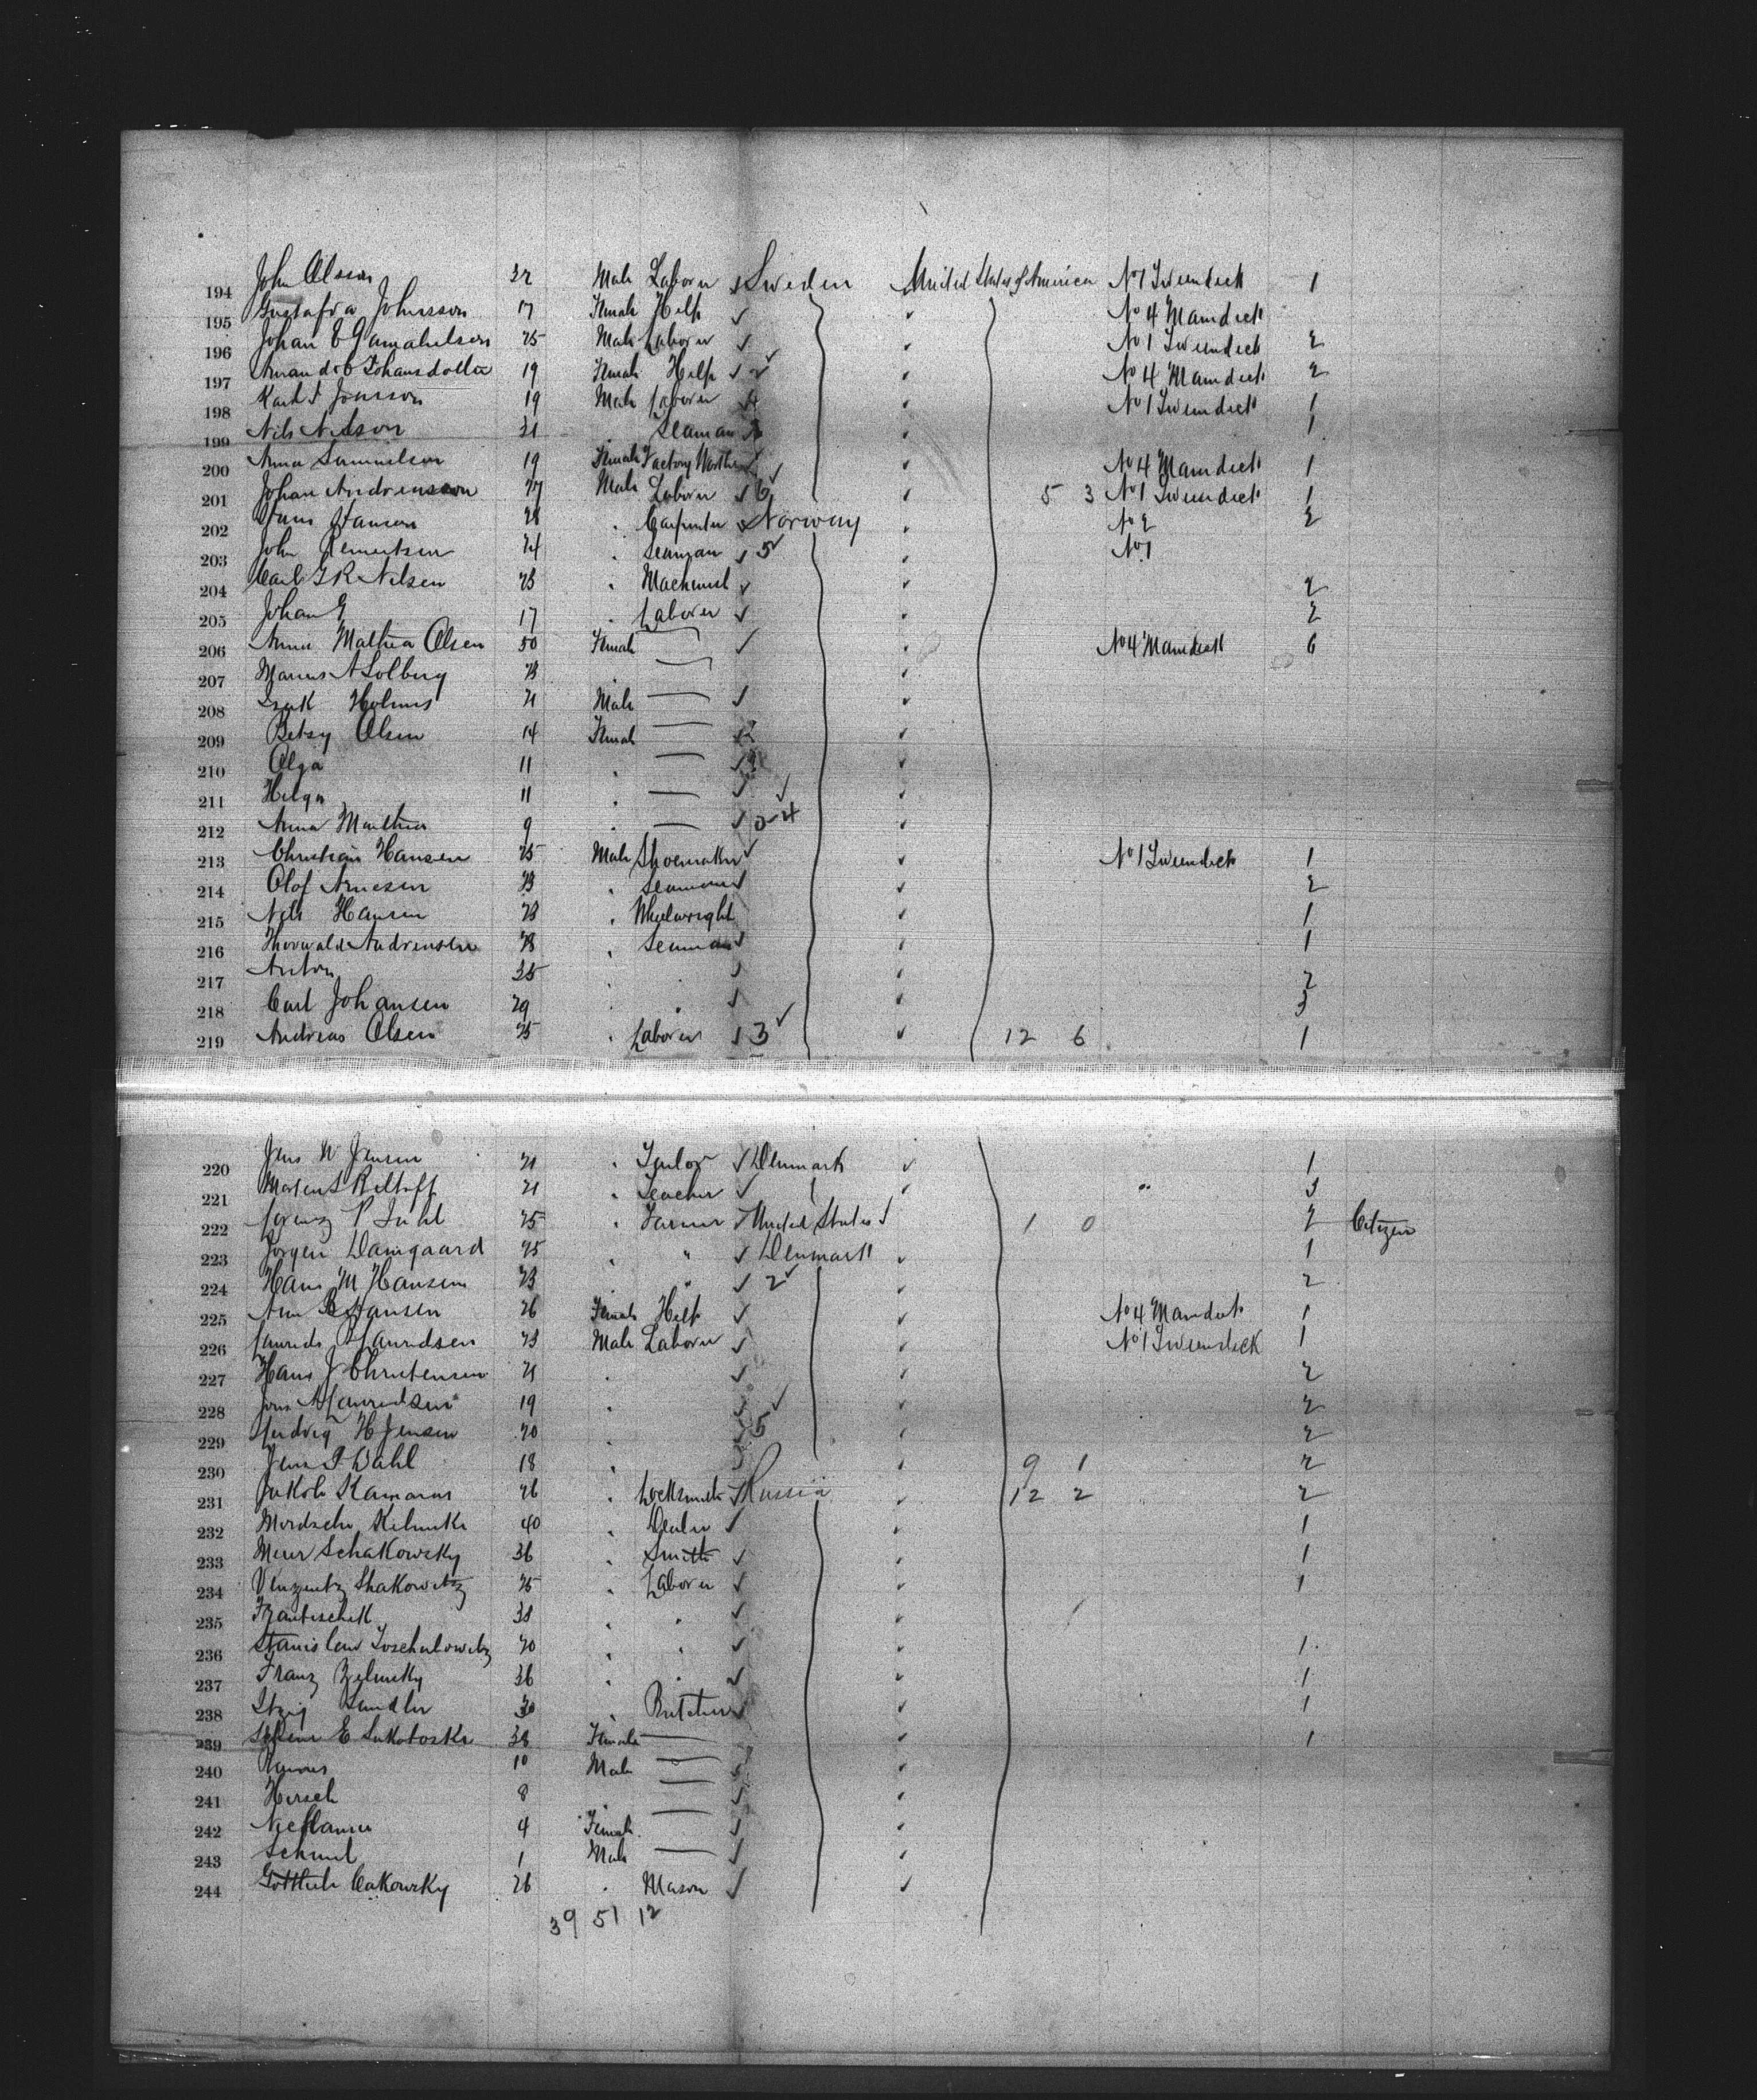 194 John Olsson 32 Male Laborer Sweden United States of America No 1 Tweendeck 1
195 Gustafva Johnsson 17 Female Help No 4 Maindeck
196 Johan E Gamalielson 25 Male Laborer No 1 Tweendeck 2
197 19 Female Help No 4 Maindeck 2
198 Karl Jonsson 19 Male Laborer 4 No 1 Tweendeck 1
199 Nils Nilsson 31 Seaman 1
200 Anna Samuelson 19 Female Factory No 4 Maindeck 1
201 Johan Andreasson 27 Male Laborer 6 5 3 No 1 Tweendeck 1
202 Hans Hansen 28 " Carpenter Norway No 2 2
203 John 24 " Seaman 5 No 1
204 Carl G R Nilsen 23 " Machinist 2
205 Johan G 17 " Laborer 2
206 Anna Mathea Olsen 50 Female — No 4 Maindeck 6
207 Solberg 23 " —
208 Isak Holmes 21 Male —
209 Betsy Olsen 14 Female — 2
210 Olga 11 " —
211 Helga 11 " —
212 Anna Mathea 9 " — 0-4
213 Christian Hansen 25 Male Shoemaker No 1 Tweendeck 1
214 Olof Arnesen 23 " Seaman 2
215 Nils Hansen 23 " Wheelwright 1
216 Thorwald Andrensen 28 " Seaman 1
217 Anton 35 " " 2
218 Carl Johansen 29 " 3
219 Andreas Olsen 25 " Laborer 3 12 6 1
220 Jens N Jensen 21 " Tailor Denmark 1
221 21 " Teacher " 3
222 P Juhl 25 " Farmer United States 1 0 2 Citizen
223 Jorgen Damgaard 25 " " Denmark 1
224 Hans M Hansen 23 " 2 2
225 Ane B Hansen 26 Female Help No 4 Maindeck 1
226 Laurids Lauridsen 23 Male Laborer No 1 Tweendeck 1
227 Hans J Christensen 21 " 2
228 Lauridsen 19 " 2
229 Ludvig H Jensen 20 " 5 2
230 Jens P Dahl 18 " 9 1 2
231 Jakob Kamaras 26 " Locksmith Russia 12 2 2
232 40 " Dealer 1
233 Meier Schakowsky 36 " Smith 1
234 Shakowitz 25 " Laborer 1
235 Frantischek 38 " "
236 Stanislaw 20 " " 1
237 Franz Zelinsky 36 " " 1
238 Itzig Sandler 30 " Butcher 1
239 38 Female — 1
240 10 Male —
241 Hirsch 8 —
242 4 Female —
243 Schmul 1 Male —
244 Gottlieb Cakowsky 26 " Mason
39 51 12